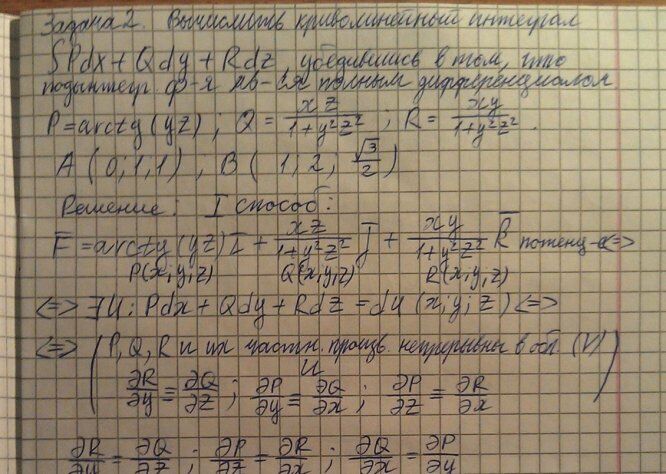 Задача 2. Вычислить криволинейный интеграл
∫Pdx + Qdy + Rdz, убедившись в том, что
подынтегр. ф-я яв-ся полным дифференциалом.
P = arctg(yz); Q = xz/(1+y²z²); R = xy/(1+y²z²).
A (0; 1; 1); B (1; 2; √3/2)
Решение: I способ:
F̄ = arctg(yz) ī + xz/(1+y²z²) j̄ + xy/(1+y²z²) k̄ потенц-е <=>
P(x; y; z) Q(x; y; z) R(x; y; z)
<=> ∃U: Pdx + Qdy + Rdz = dU(x; y; z) <=>
<=> (P, Q, R и их частн. произв. непрерывны в обл. (V)
и
∂R/∂y ≡ ∂Q/∂z; ∂P/∂y ≡ ∂Q/∂x; ∂P/∂z ≡ ∂R/∂x)
∂R/∂y = ∂Q/∂z; ∂P/∂z = ∂R/∂x; ∂Q/∂x = ∂P/∂y